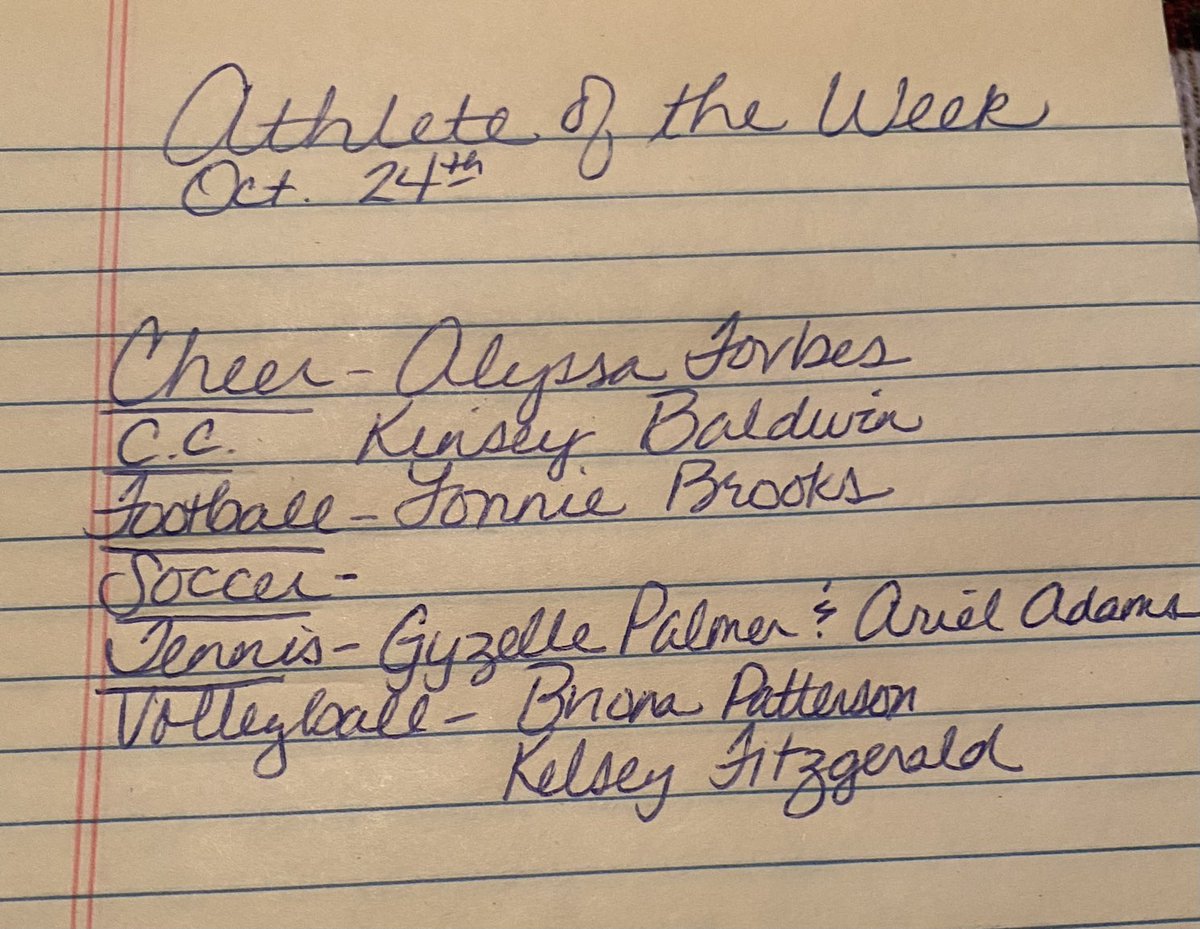 Athlete of the Week
Oct. 24th
Cheer - Alyssa Forbes
C.C. Kinsey Baldwin
Football - Fonnie Brooks
Soccer -
Tennis - Gyzelle Palmer & Ariel Adams
Volleyball - Briona Patterson
Kelsey Fitzgerald